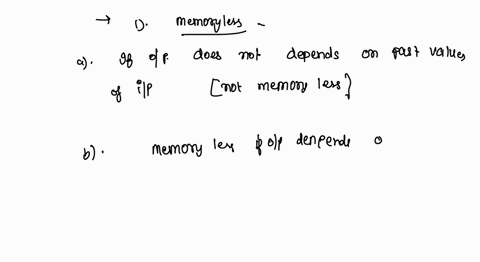 → 1). memoryless -
a). If o/p. does not depends on past values
of i/p [not memory less]
b). memory less o/p denpends o